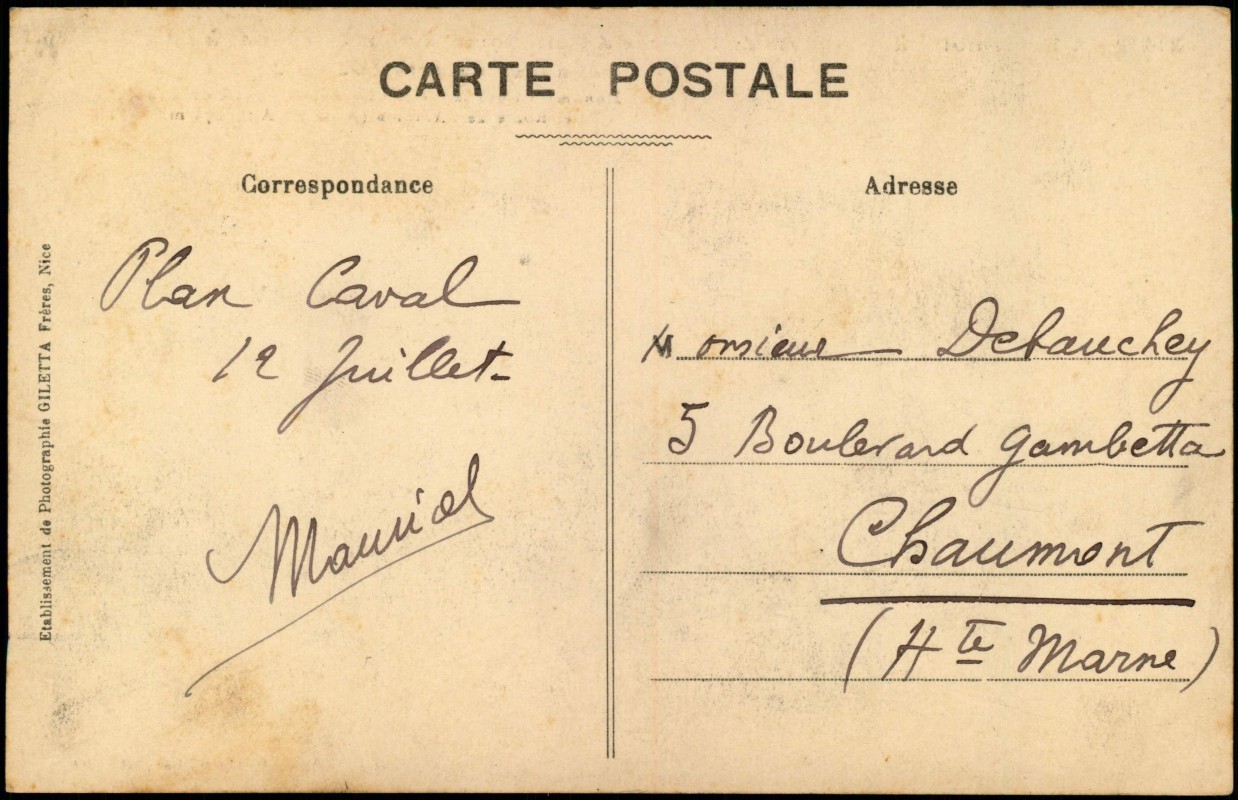 CARTE POSTALE
Correspondance
Plan Caval
12 Juillet
Adresse
Monsieur Debauchey
5 Boulevard Gambetta
Chaumont
(Hte Marne)
Etablissement de Photographie GILETTA Frères, Nice